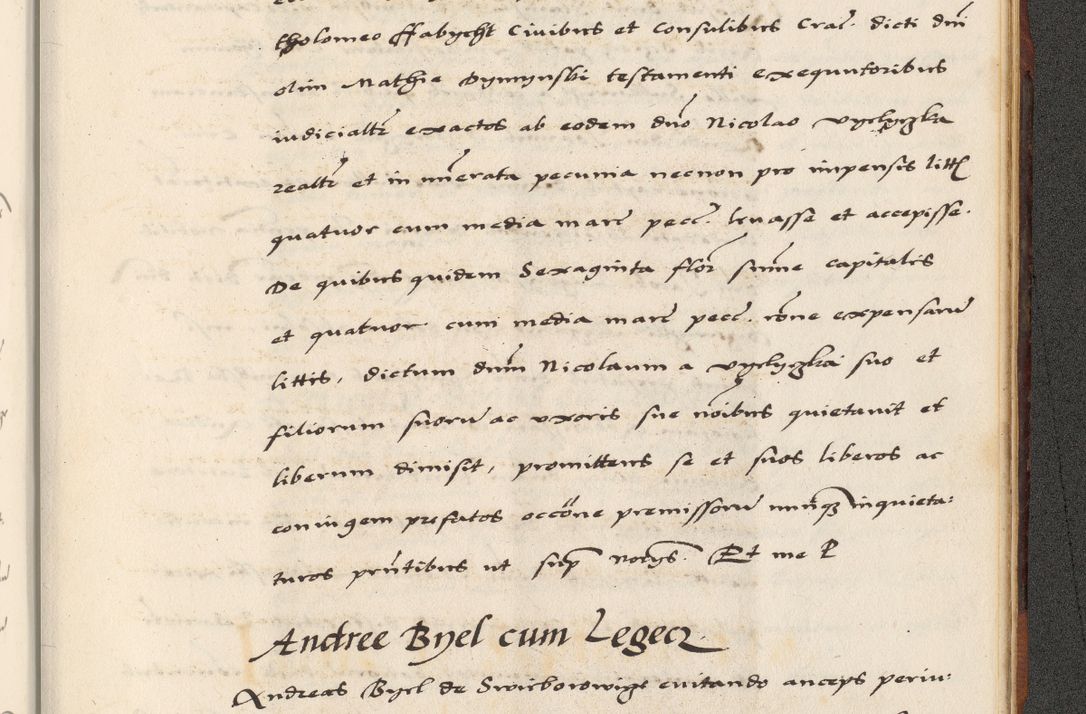 tholomeo ffabycht Civibus et Consulibus Crac. dicti dni
olim Mathie Dymynski testamenti exequutoribus
iudicialr exactos ab eodem dno Nicolao vyclyczka
realr et in nuerata pecunia necnon pro impensis litt
quatuor cum media marc pecc. levasse et accepisse.
De quibus quidem Sexaginta flor sume capitalis
et quatuor cum media marc pecc. rone expensaru
littis, dictum dnum Nicolaum a vyclyczka suo et
filiorum suoru ac vxoris sue noibus quietavit et
liberum dimisit, promittens se et suos liberos ac
coniugem prefatos occone premissoru nunq inquieta:
turos prntibus ut sup notys. Et me P
Andree Byel cum Legecz
Andreas Byel de Swieborowige evitando anceps periu: